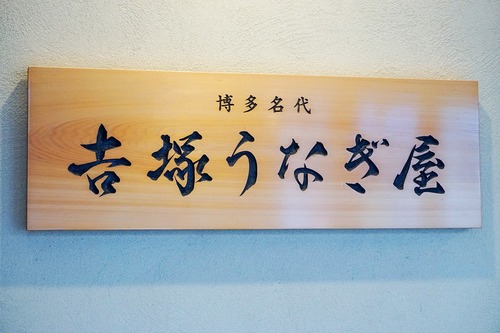 博多名代
𠮷塚うなぎ屋